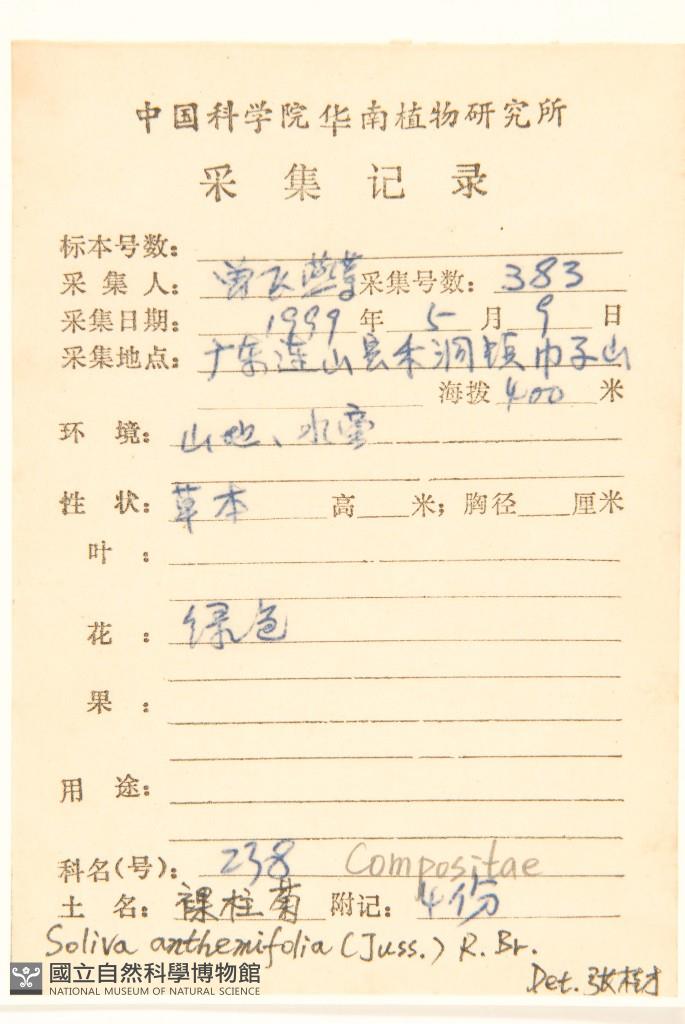 中国科学院华南植物研究所
采集记录
标本号数:
采集人: 曾飞燕等 采集号数: 383
采集日期: 1999年5月9日
采集地点: 广东连山县禾洞镇巾子山
海拨 400 米
环境: 山地、水壑
性状: 草本 高 米; 胸径 厘米
叶:
花: 绿色
果:
用途:
科名(号): 238 Compositae
土名: 裸柱菊 附记: 4份
Soliva anthemifolia (Juss.) R. Br.
Det. 张桂才
國立自然科學博物館
NATIONAL MUSEUM OF NATURAL SCIENCE